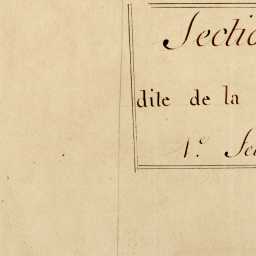 Sectio
dite de la
1.e Se